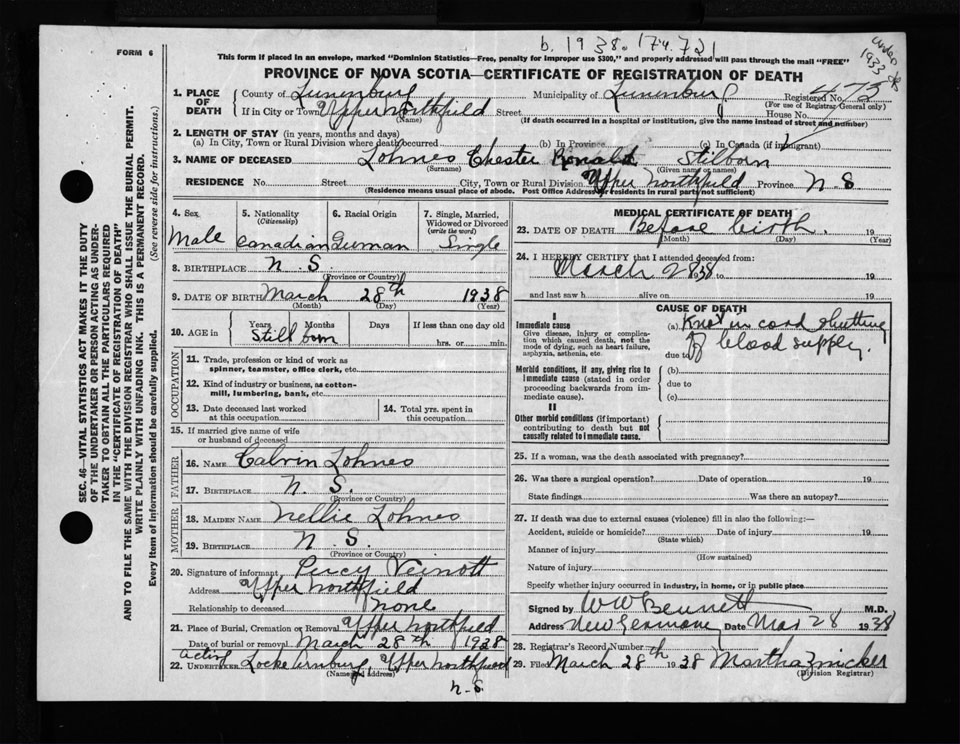 FORM 6
b. 1938. 174.721
under 1933
This form if placed in an envelope, marked "Dominion Statistics—Free, penalty for improper use $300," and properly addressed will pass through the mail "FREE"
PROVINCE OF NOVA SCOTIA—CERTIFICATE OF REGISTRATION OF DEATH
SEC. 46—VITAL STATISTICS ACT MAKES IT THE DUTY
OF THE UNDERTAKER OR PERSON ACTING AS UNDER-
TAKER TO OBTAIN ALL THE PARTICULARS REQUIRED
IN THE "CERTIFICATE OF REGISTRATION OF DEATH"
AND TO FILE THE SAME WITH THE DIVISION REGISTRAR WHO SHALL ISSUE THE BURIAL PERMIT.
WRITE PLAINLY WITH UNFADING INK. THIS IS A PERMANENT RECORD.
Every item of information should be carefully supplied. (See reverse side for instructions.)
1. PLACE OF DEATH
County of Lunenburg Municipality of Lunenburg Registered No. 475
(For use of Registrar General only)
If in City or Town Upper Northfield Street House No.
(Name) (If death occurred in a hospital or institution, give the name instead of street and number)
2. LENGTH OF STAY (in years, months and days)
(a) In City, Town or Rural Division where death occurred (b) In Province (c) In Canada (if immigrant)
3. NAME OF DECEASED Lohnes Chester Ronald Stilborn
(Surname) (Given name or names)
RESIDENCE No. Street City, Town or Rural Division Upper Northfield Province N.S
(Residence means usual place of abode. Post Office Address for residents in rural parts not sufficient)
4. Sex Male
5. Nationality (Citizenship) Canadian
6. Racial Origin German
7. Single, Married, Widowed or Divorced (write the word) Single
8. BIRTHPLACE N.S.
(Province or Country)
9. DATE OF BIRTH March 28th 1938
(Month) (Day) (Year)
10. AGE in Years Months Days If less than one day old
Still born hrs. or min.
OCCUPATION
11. Trade, profession or kind of work as
spinner, teamster, office clerk, etc.
12. Kind of industry or business, as cotton-
mill, lumbering, bank, etc.
13. Date deceased last worked
at this occupation
14. Total yrs. spent in
this occupation
15. If married give name of wife
or husband of deceased
FATHER
16. NAME Calvin Lohnes
17. BIRTHPLACE N.S.
(Province or Country)
MOTHER
18. MAIDEN NAME Nellie Lohnes
19. BIRTHPLACE N.S.
(Province or Country)
20. Signature of informant Percy Veinott
Address Upper Northfield
Relationship to deceased none
21. Place of Burial, Cremation or Removal Upper Northfield
Date of burial or removal March 28th 1938
acting
22. UNDERTAKER Upper Northfield
(Name and address)
N.S.
MEDICAL CERTIFICATE OF DEATH
23. DATE OF DEATH Before birth. 19
(Month) (Day) (Year)
24. I HEREBY CERTIFY that I attended deceased from:
March 28 38 19
and last saw h alive on 19
CAUSE OF DEATH
I
Immediate cause
Give disease, injury or complica-
tion which caused death, not the
mode of dying, such as heart failure,
asphyxia, asthenia, etc.
(a) Knot in cord shutting
off blood supply.
due to
Morbid conditions, if any, giving rise to
immediate cause (stated in order
proceeding backwards from im-
mediate cause).
(b)
due to
(c)
II
Other morbid conditions (if important)
contributing to death but not
causally related to immediate cause.
25. If a woman, was the death associated with pregnancy?
26. Was there a surgical operation? Date of operation 19
State findings Was there an autopsy?
27. If death was due to external causes (violence) fill in also the following:—
Accident, suicide or homicide? Date of injury 19
(State which)
Manner of injury
(How sustained)
Nature of injury
Specify whether injury occurred in industry, in home, or in public place
Signed by W W Bennett M.D.
Address New Germany Date Mar 28 1938
28. Registrar's Record Number
29. Filed March 28th 1938 Martha Zwicker
(Division Registrar)